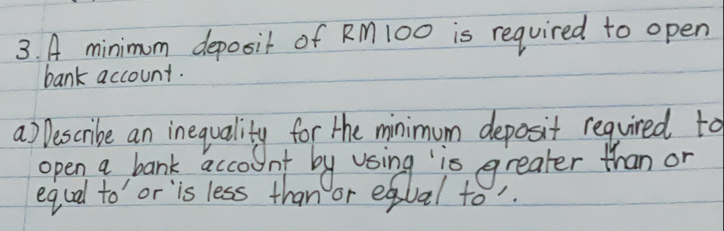 3. A minimum deposit of RM100 is required to open
bank account.
a) Describe an inequality for the minimum deposit required to
open a bank account by using 'is greater than or
equal to' or 'is less than or equal to'.